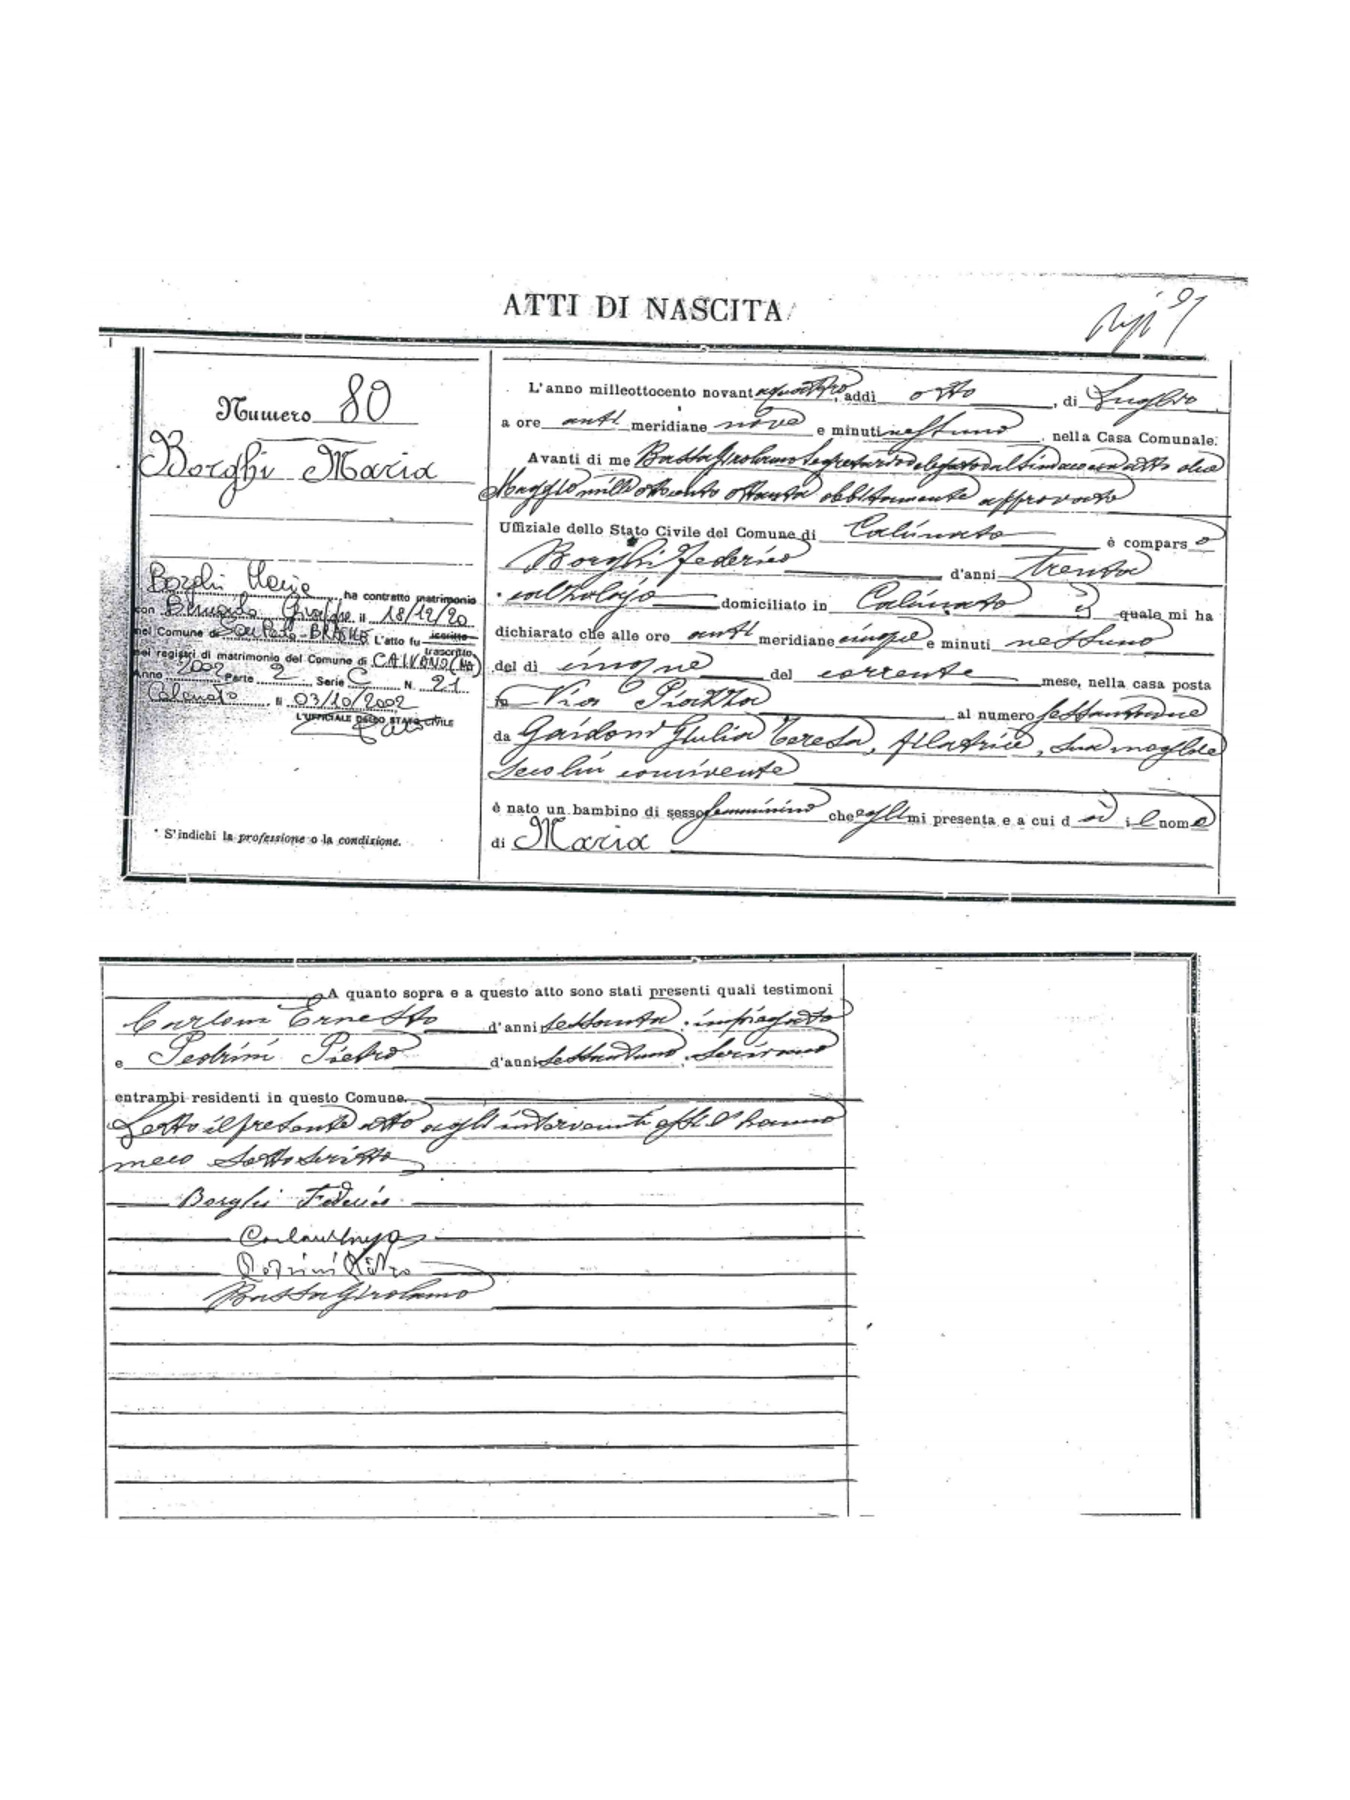 ATTI DI NASCITA
Numero 80
Borghi Maria
Borghi Maria ha contratto matrimonio
con Bernardo Giuseppe il 18/12/20
nel Comune di San Paolo - BRASILE L'atto fu iscritto
trascritto
nei registri di matrimonio del Comune di CAIVANO (NA)
Anno 2002 Parte 2 Serie C N. 21
Calcinato li 03/10/2002
L'UFFICIALE DELLO STATO CIVILE
* S'indichi la professione o la condizione.
L'anno milleottocento novantaquattro, addì otto, di Luglio
a ore anti meridiane nove e minuti nessuno, nella Casa Comunale.
Avanti di me Basta Girolamo Segretario delegato dal Sindaco con atto due
Maggio mille ottocento ottanta debitamente approvato
Uffiziale dello Stato Civile del Comune di Calcinato è comparso
Borghi Federico d'anni trenta
calzolajo domiciliato in Calcinato il quale mi ha
dichiarato che alle ore anti meridiane cinque e minuti nessuno
del dì cinque del corrente mese, nella casa posta
in Via Piazza al numero
da Gaidoni Giulia Teresa, filatrice, sua moglie
seco lui convivente
è nato un bambino di sesso femminino che egli mi presenta e a cui dà il nome
di Maria
A quanto sopra e a questo atto sono stati presenti quali testimoni
Carloni Ernesto d'anni sessanta, impiegato
e Pedrini Pietro d'anni sessantuno, scrivano
entrambi residenti in questo Comune.
Letto il presente atto agli intervenuti essi l'hanno
meco sottoscritto
Borghi Federico
Pedrini Pietro
Basta Girolamo